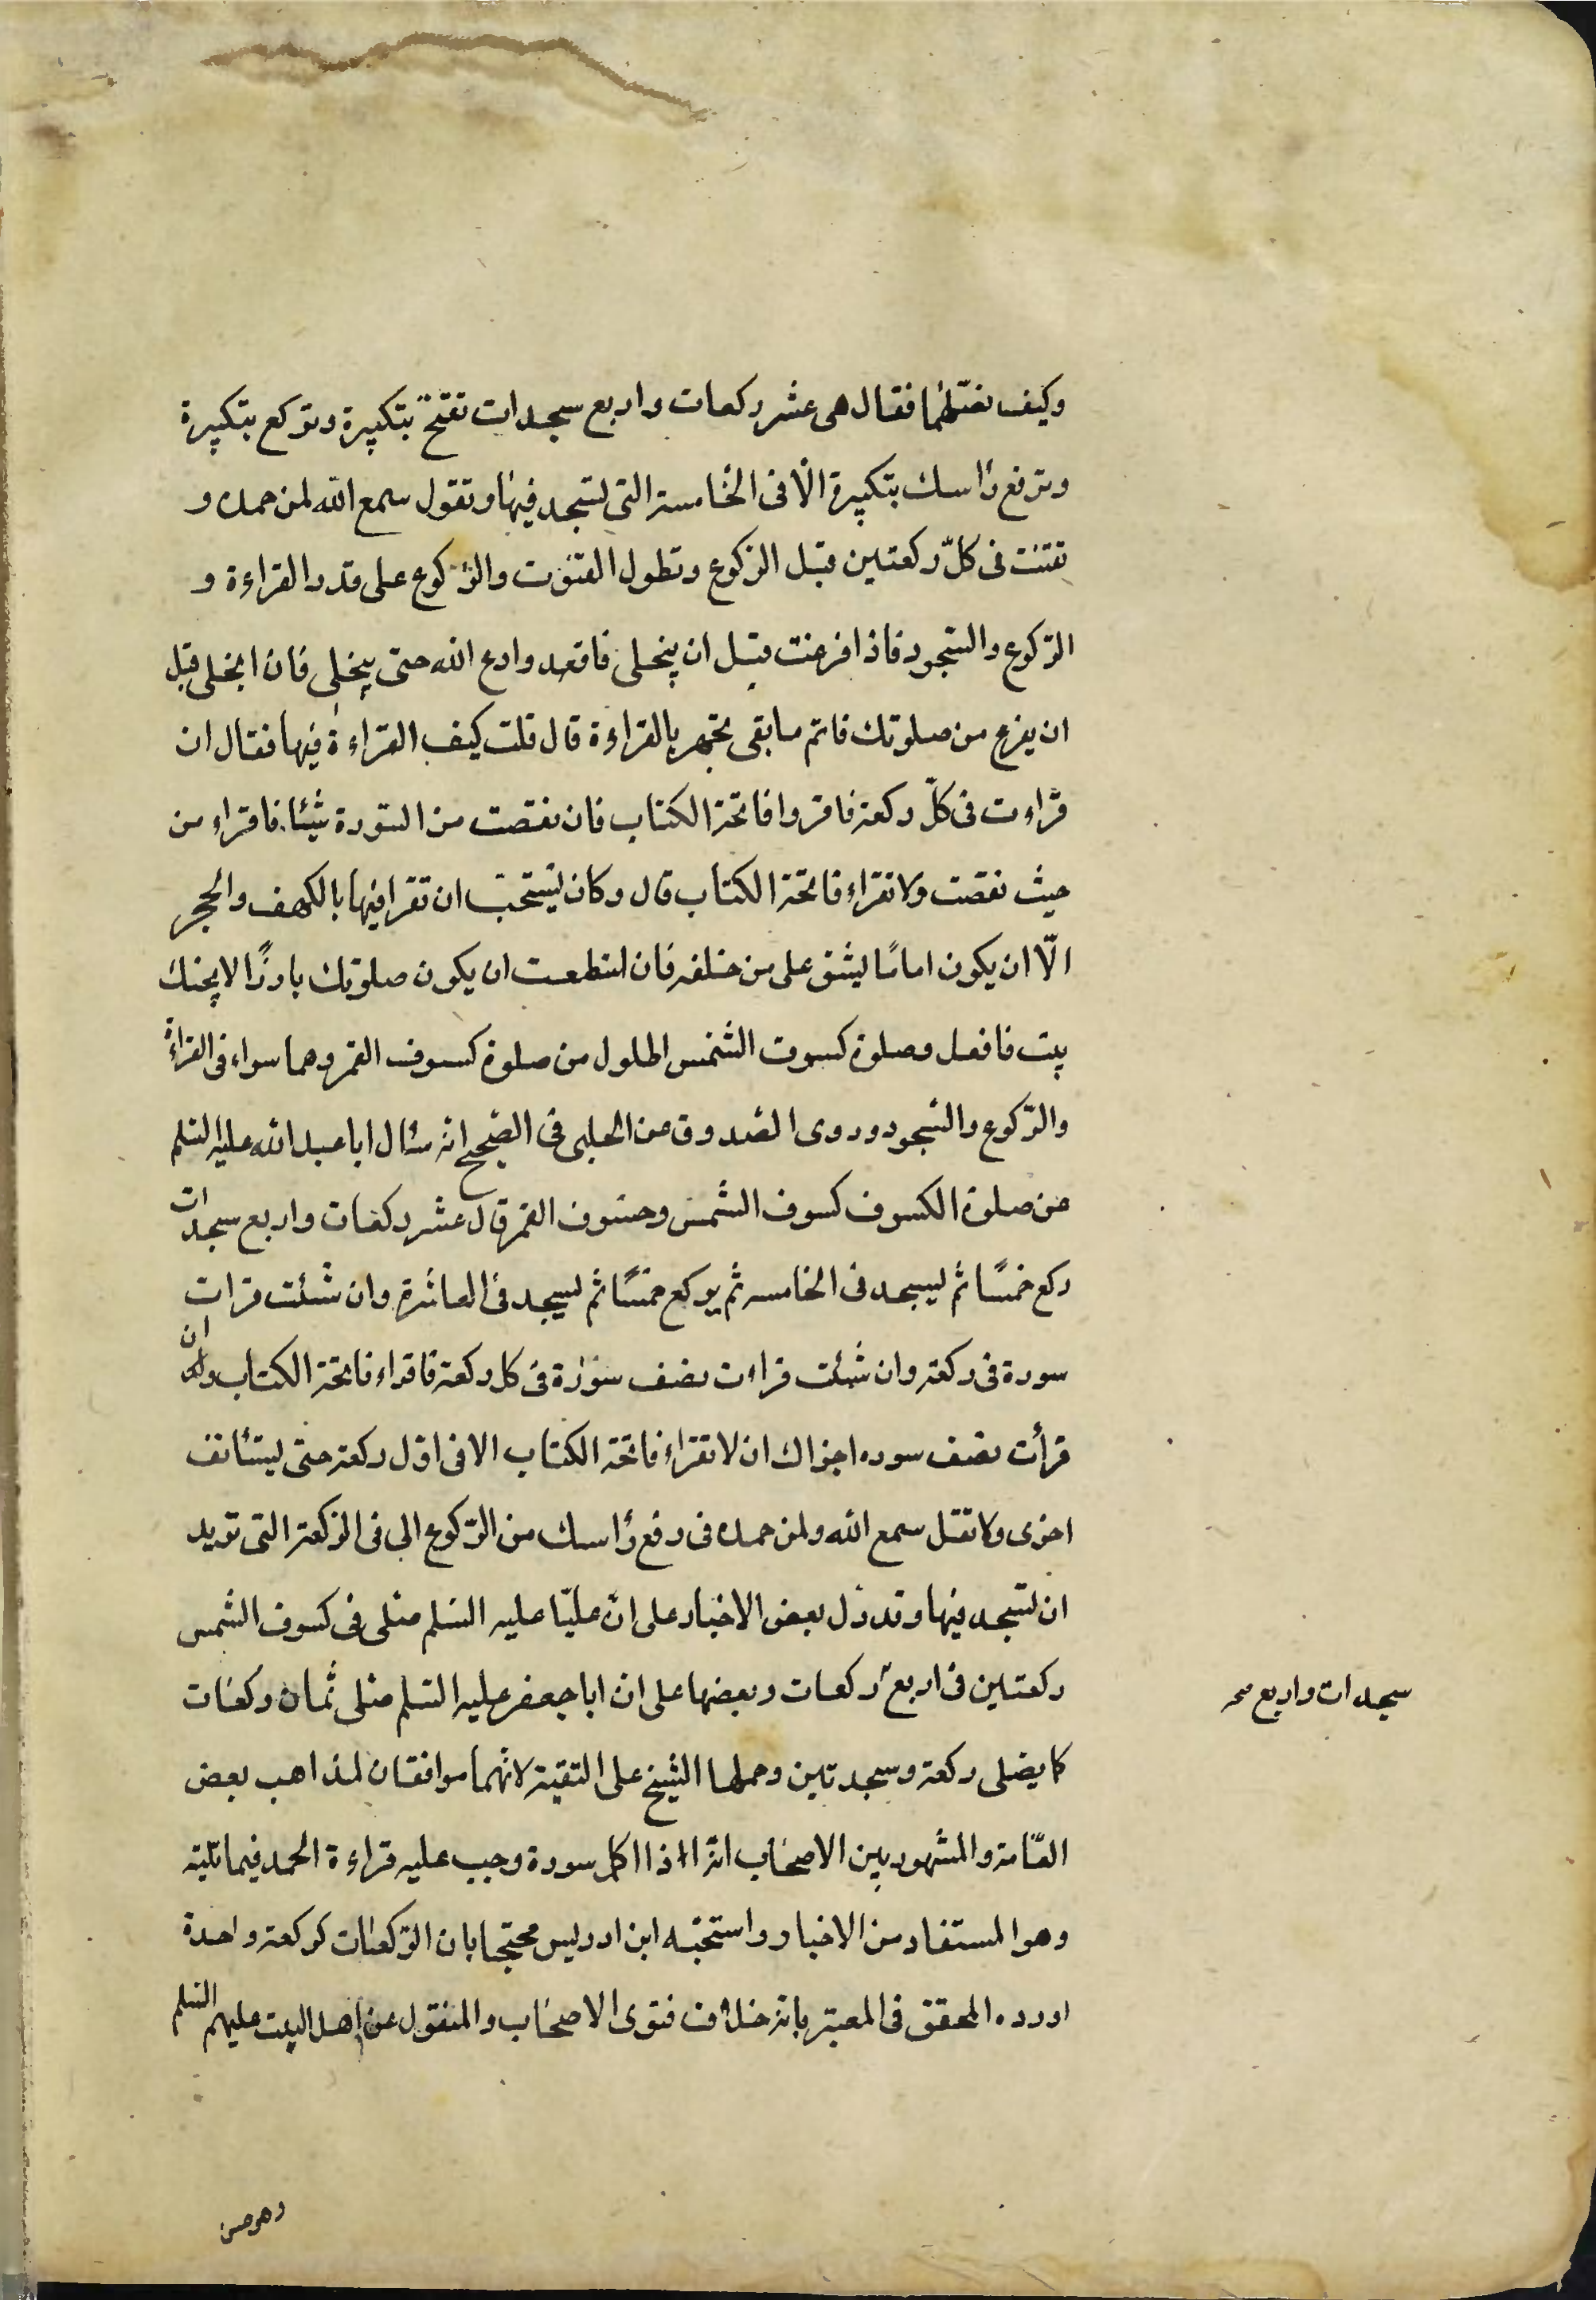 وكيف نصليها فقال هى عشر ركعات واربع سجدات تفتتح بتكبيرة وتركع بتكبيرة
وترفع رأسك بتكبيرة الا فى الخامسة التى تسجد فيها وتقول سمع الله لمن حمده و
تقنت فى كلّ ركعتين قبل الركوع وتطول القنوت والركوع على قدر القراءة و
الركوع والسجود فاذا فرغت قبل ان ينجلى فاقعد وادع الله حتى ينجلى فان انجلى قبل
ان يفرغ من صلوتك فاتم مابقى تجهر بالقراءة قال قلت كيف القراءة فيها فقال ان
قراءت فى كلّ ركعة فاقروا فاتحة الكتاب فان نقصت من السورة شيئا فاقراء من
حيث نقصت ولا تقراء فاتحة الكتاب قال وكان يستحب ان تقرا فيها بالكهف والحجر
الّا ان يكون امامًا يشق على من خلفه فان استطعت ان يكون صلوتك بارزًا لا يجنك
بيت فافعل وصلوة كسوف الشمس اطول من صلوة كسوف القمر وهما سواء فى القراءة
والركوع والسجود وروى الصدوق عن الحلبى فى الصحيح انه سئال ابا عبد الله عليه السلم
عن صلوة الكسوف كسوف الشمس وخسوف القمر قال عشر ركعات واربع سجدات
ركع خمسًا ثم يسجد فى الخامسه ثم يركع خمسًا ثم يسجد فى العاشرة وان شئت قرات
سورة فى ركعة وان شئت قراءت نصف سورة فى كل ركعة فاقراء فاتحة الكتاب وان
قرأت نصف سوره اجزاك ان لا تقراء فاتحة الكتاب الا فى اوّل ركعة حتى يستئانف
اخرى ولا تقل سمع الله ولمن حمده فى رفع رأسك من الركوع الى فى الركعة التى تريد
ان تسجد فيها وقد دل بعض الاخبار على انّ عليّا عليه السلم صلى فى كسوف الشمس
ركعتين فى اربع ركعات وبعضها على ان ابا جعفر عليه السلم صلى ثمان ركعات
كما يصلى ركعة وسجدتين وحملها الشيخ على التقية لانهما موافقان لمذاهب بعض
العّامة والمشهور بين الاصحاب انه اذا اكمل سورة وجب عليه قراءة الحمد فيما تليه
وهو المستفاد من الاخبار واستحبّه ابن ادريس محتجا بان الركعات كركعة واحدة
اورده المحقق فى المعتبر بانه خلاف فتوى الاصحاب والمنقول عن اهل البيت عليهم السلم
سجدات واربع صح
وهو حسن